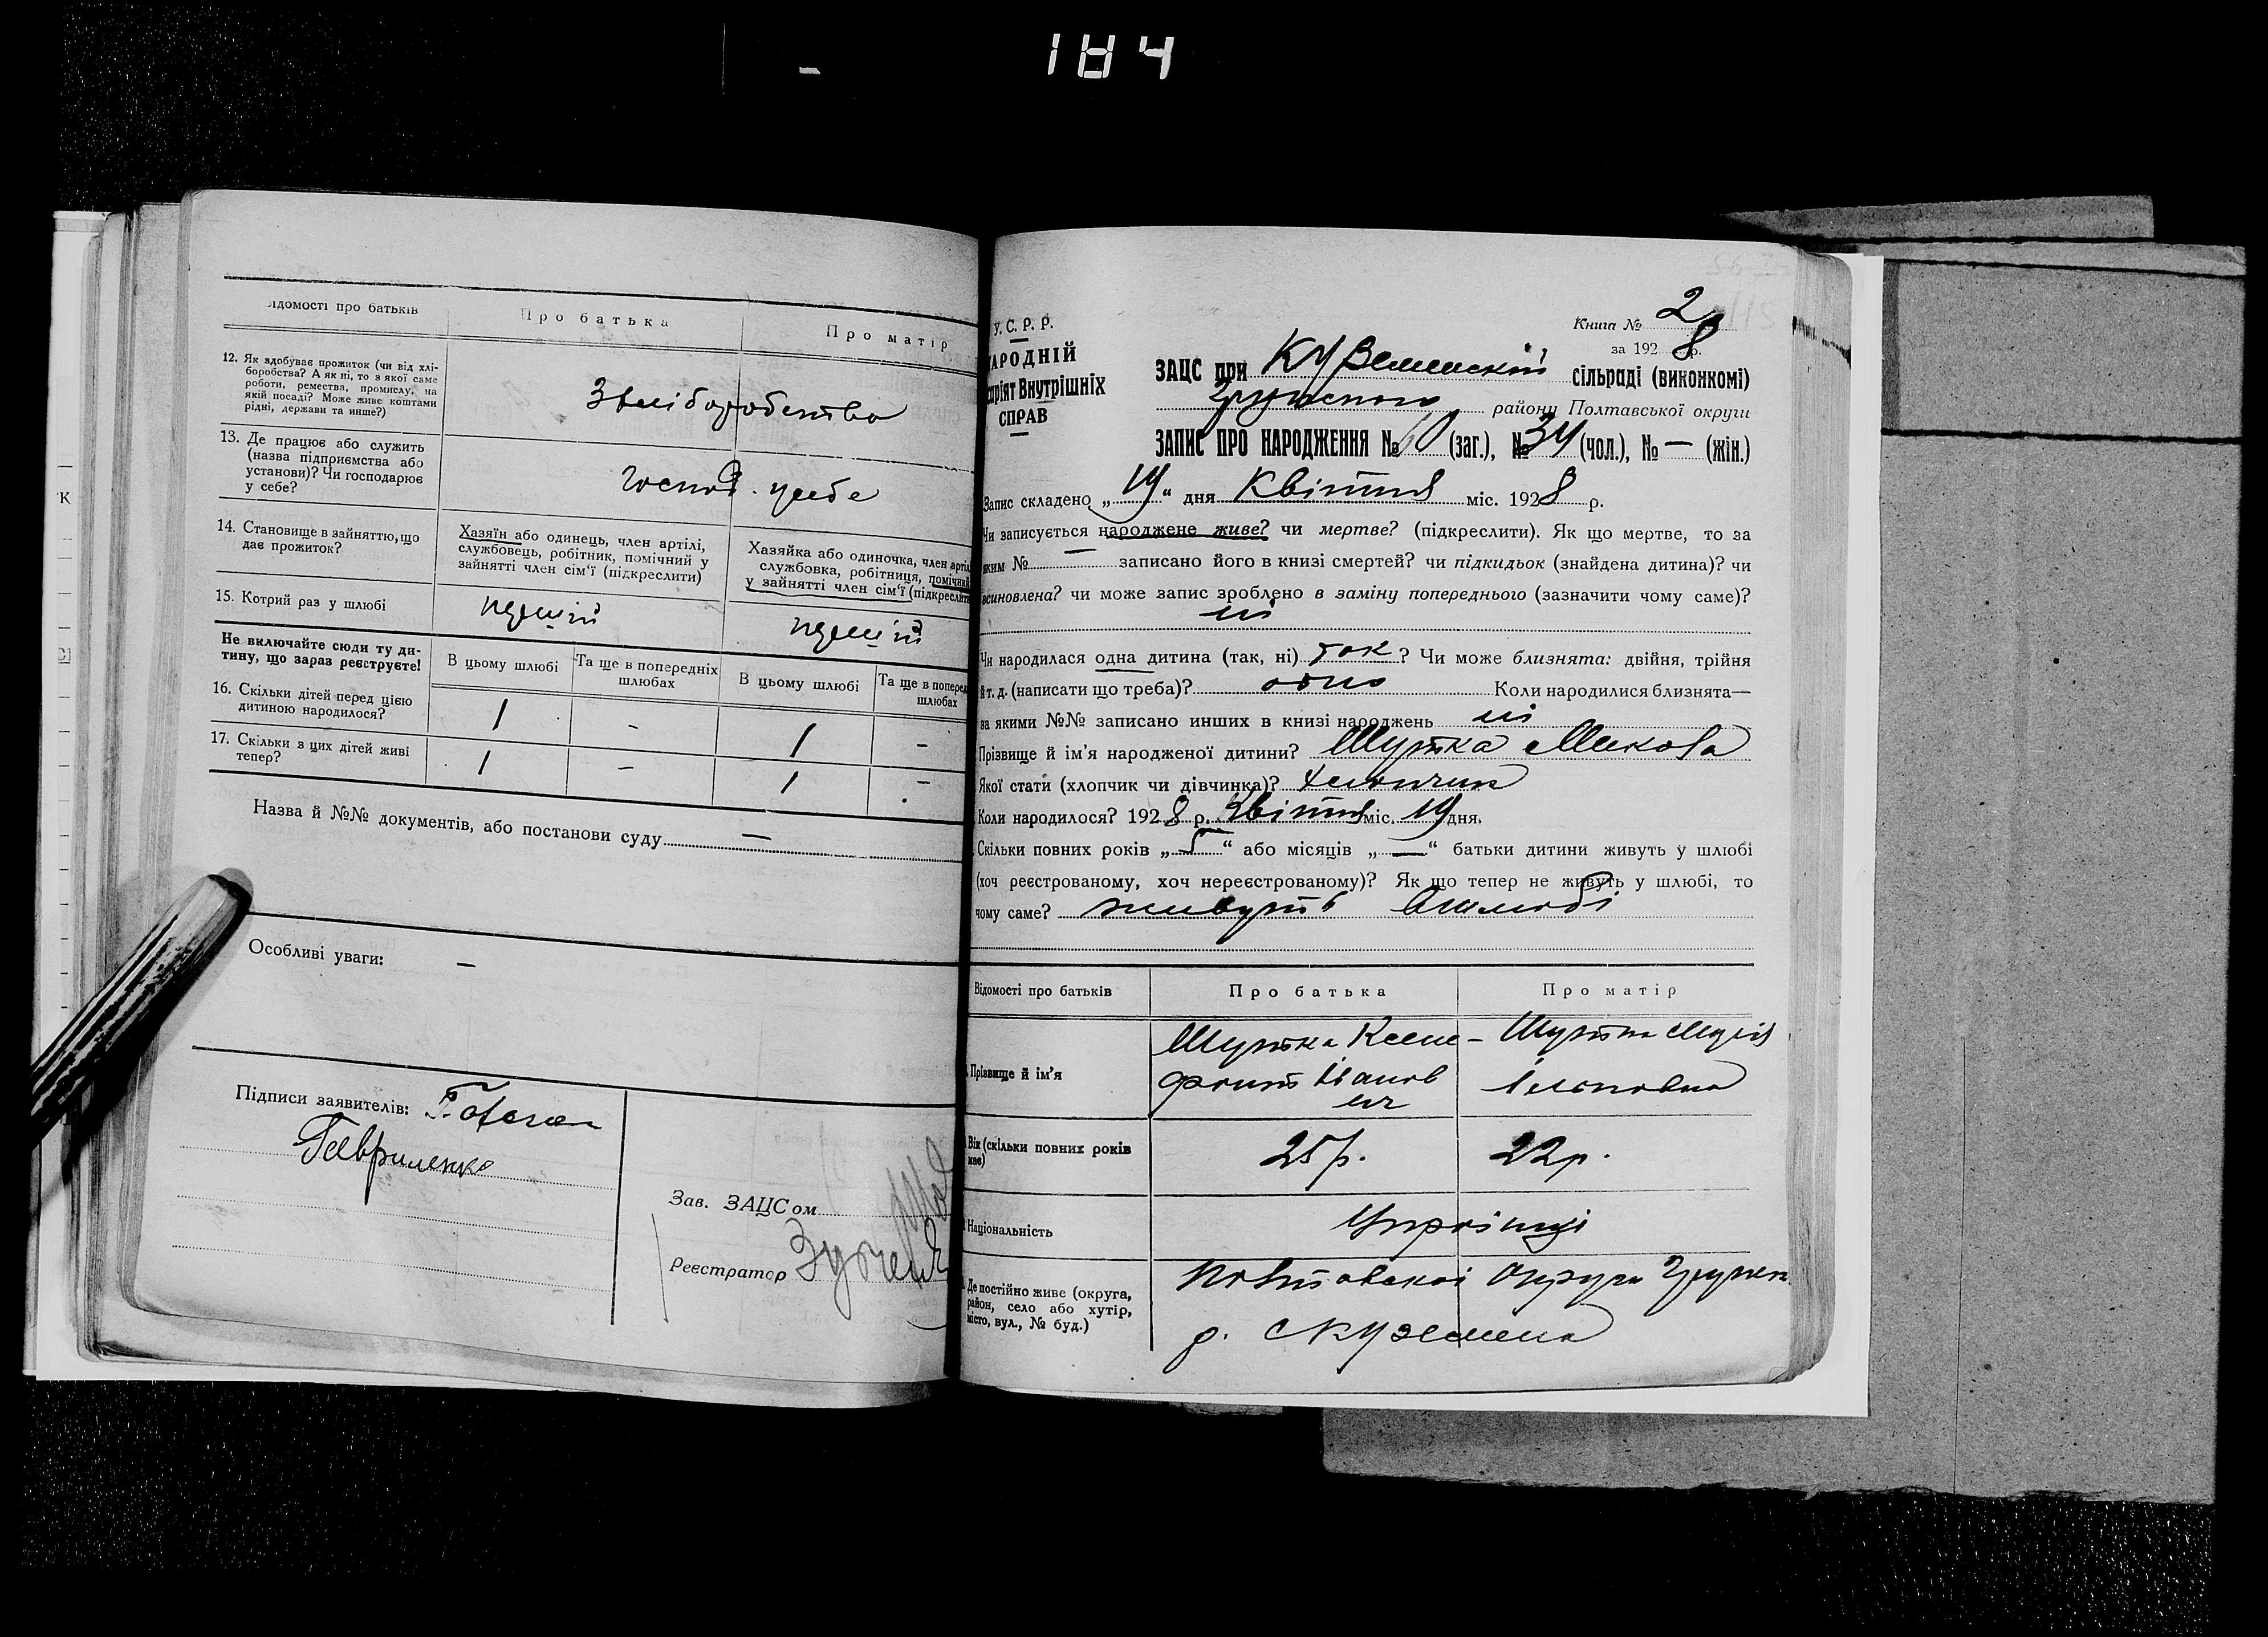 184
Відомості про батьків
Про батька
Про матір
12. Як здобуває прожиток (чи від хлі-
боробства? А як ні, то з якої саме
роботи, ремества, промислу, на
якій посаді? Може живе коштами
рідні, держави та инше?)
З хліборобства
13. Де працює або служить
(назва підприємства або
установи)? Чи господарює
у себе?
господ. усебе
14. Становище в зайняттю, що
дає прожиток?
Хазяїн або одинець, член артілі,
службовець, робітник, помічний у
зайнятті член сім'ї (підкреслити)
Хазяйка або одиночка, член артіл
службовка, робітниця, помічний
у зайнятті член сім'ї (підкреслити
15. Котрий раз у шлюбі
перший
перший
Не включайте сюди ту ди-
тину, що зараз реєструєте!
В цьому шлюбі
Та ще в попередніх
шлюбах
В цьому шлюбі
Та ще в поперед
шлюбах
16. Скільки дітей перед цією
дитиною народилося?
1 - 1 -
17. Скільки з цих дітей живі
тепер?
1 - 1 -
Назва й №№ документів, або постанови суду —
Особливі уваги: —
Підписи заявителів:
Гавриленко
Зав. ЗАЦСом
Реєстратор
У. С. Р. Р.
НАРОДНІЙ
Внутрішніх
СПРАВ
Книга № 2
за 1928 р.
ЗАЦС при сільраді (виконкомі)
району Полтавської округи
ЗАПИС ПРО НАРОДЖЕННЯ № (заг.), № 34 (чол.), № — (жін.)
Запис складено „19“ дня Квітня міс. 1928 р.
Чи записується народжене живе? чи мертве? (підкреслити). Як що мертве, то за
яким № — записано його в книзі смертей? чи підкидьок (знайдена дитина)? чи
всиновлена? чи може запис зроблено в заміну попереднього (зазначити чому саме)?
ні
Чи народилася одна дитина (так, ні) так? Чи може близнята: двійня, трійня
й т. д. (написати що треба)? одно Коли народилися близнята—
за якими №№ записано инших в книзі народжень ні
Прізвище й ім'я народженої дитини? Шутка Микола
Якої стати (хлопчик чи дівчинка)? хлопчик
Коли народилося? 1928 р. Квітня міс. 19 дня.
Скільки повних років „5“ або місяців „—“ батьки дитини живуть у шлюбі
(хоч реєстрованому, хоч нереєстрованому)? Як що тепер не живуть у шлюбі, то
чому саме? живуть вшлюбі
Відомості про батьків
Про батька
Про матір
Прізвище й ім'я
Шутка Ксено-
фонт Іванов
ич
Шутка Марія
Вік (скільки повних років
має)
25 р.
22 р.
Національність
Українці
Де постійно живе (округа,
район, село або хутір,
місто, вул., № буд.)
Полтавскої Округи
р.